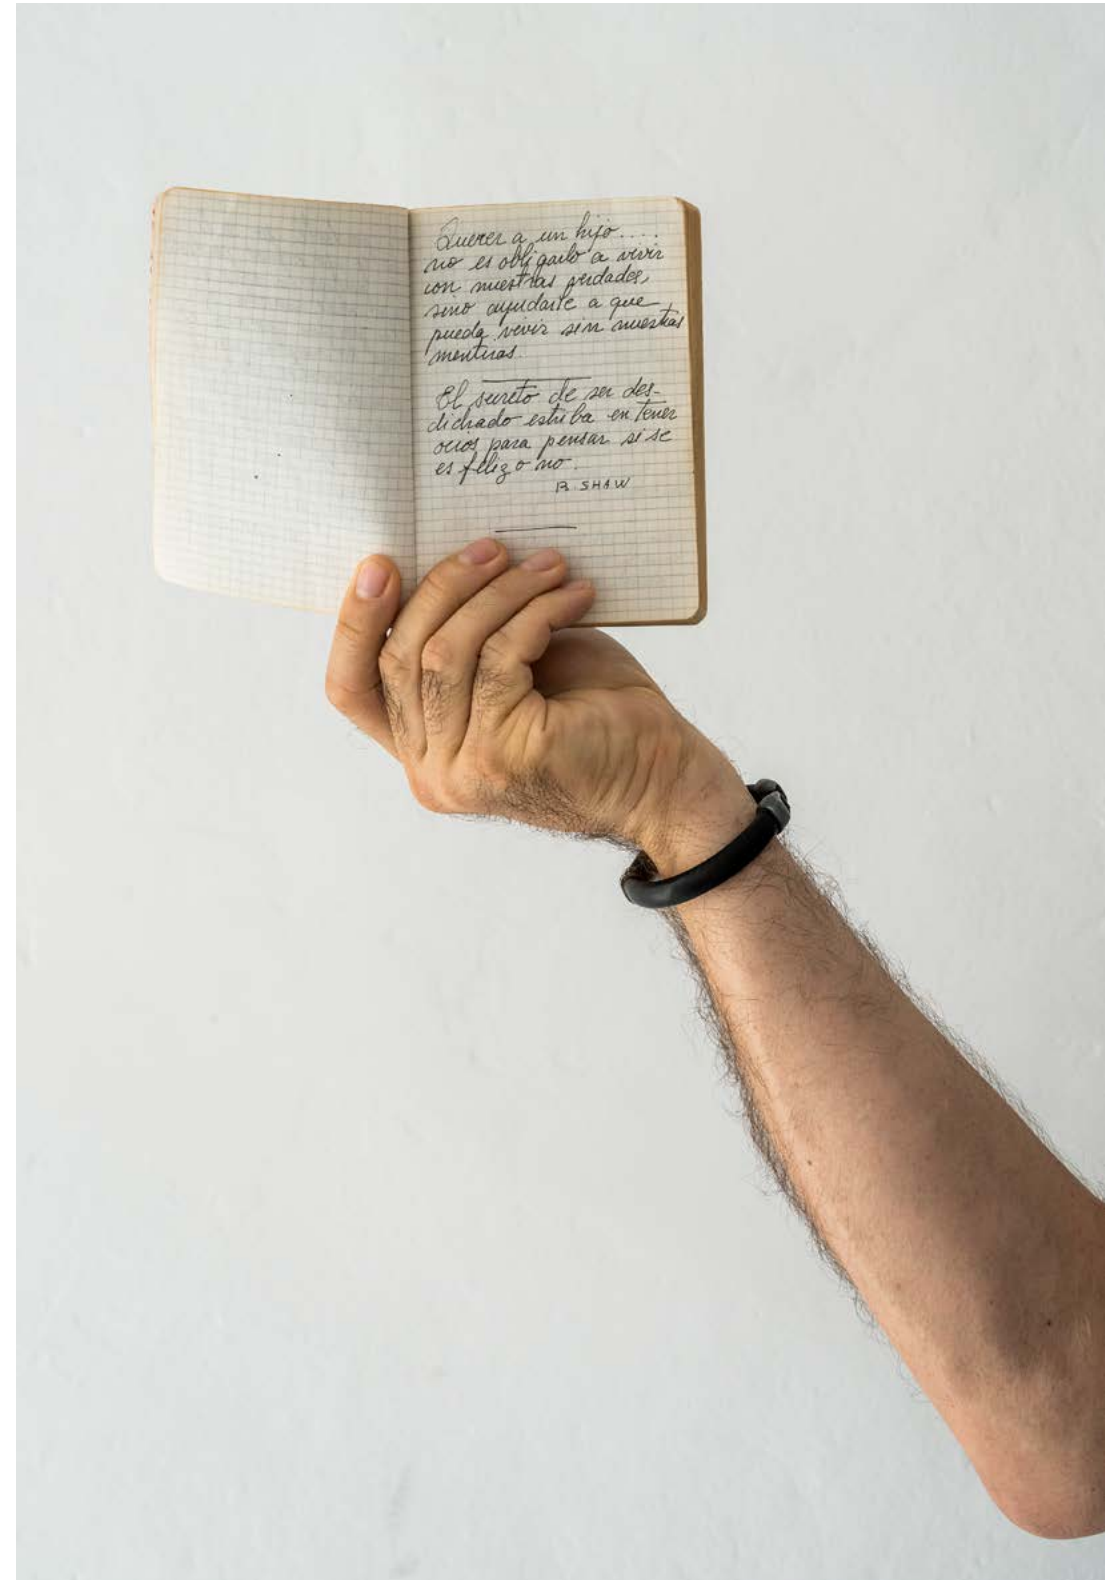 Querer a un hijo....
no es obligarlo a vivir
con nuestras verdades,
sino ayudarle a que
pueda vivir sin nuestras
mentiras.
El secreto de ser des-
dichado estriba en tener
ocios para pensar si se
es feliz o no.
B. SHAW